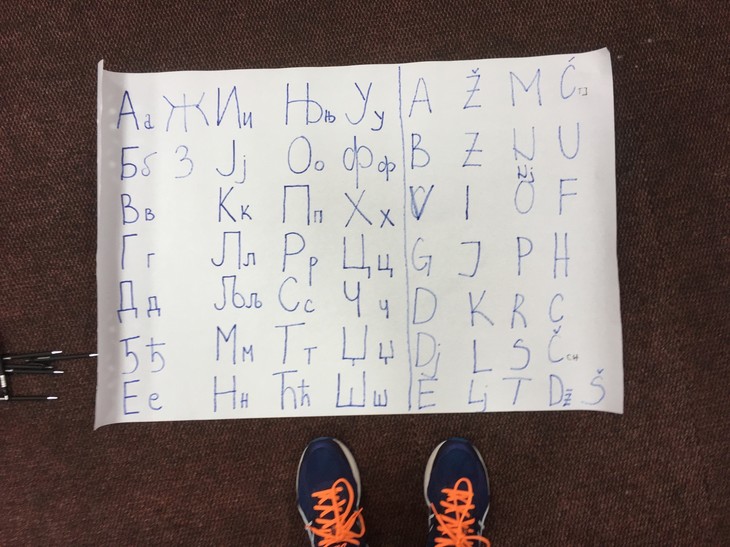 Аа Ж Ии Њњ Уу A Ž M Ć
Бб З Јј Оо Фф B Z N U
Вв Кк Пп Хх V I Nj O F
Гг Лл Рр Цц G J P H
Дд Љљ Сс Чч D K R C
Ђђ Мм Тт Џџ Dj L S Č
Ее Нн Ћћ Шш E Lj T Dž Š